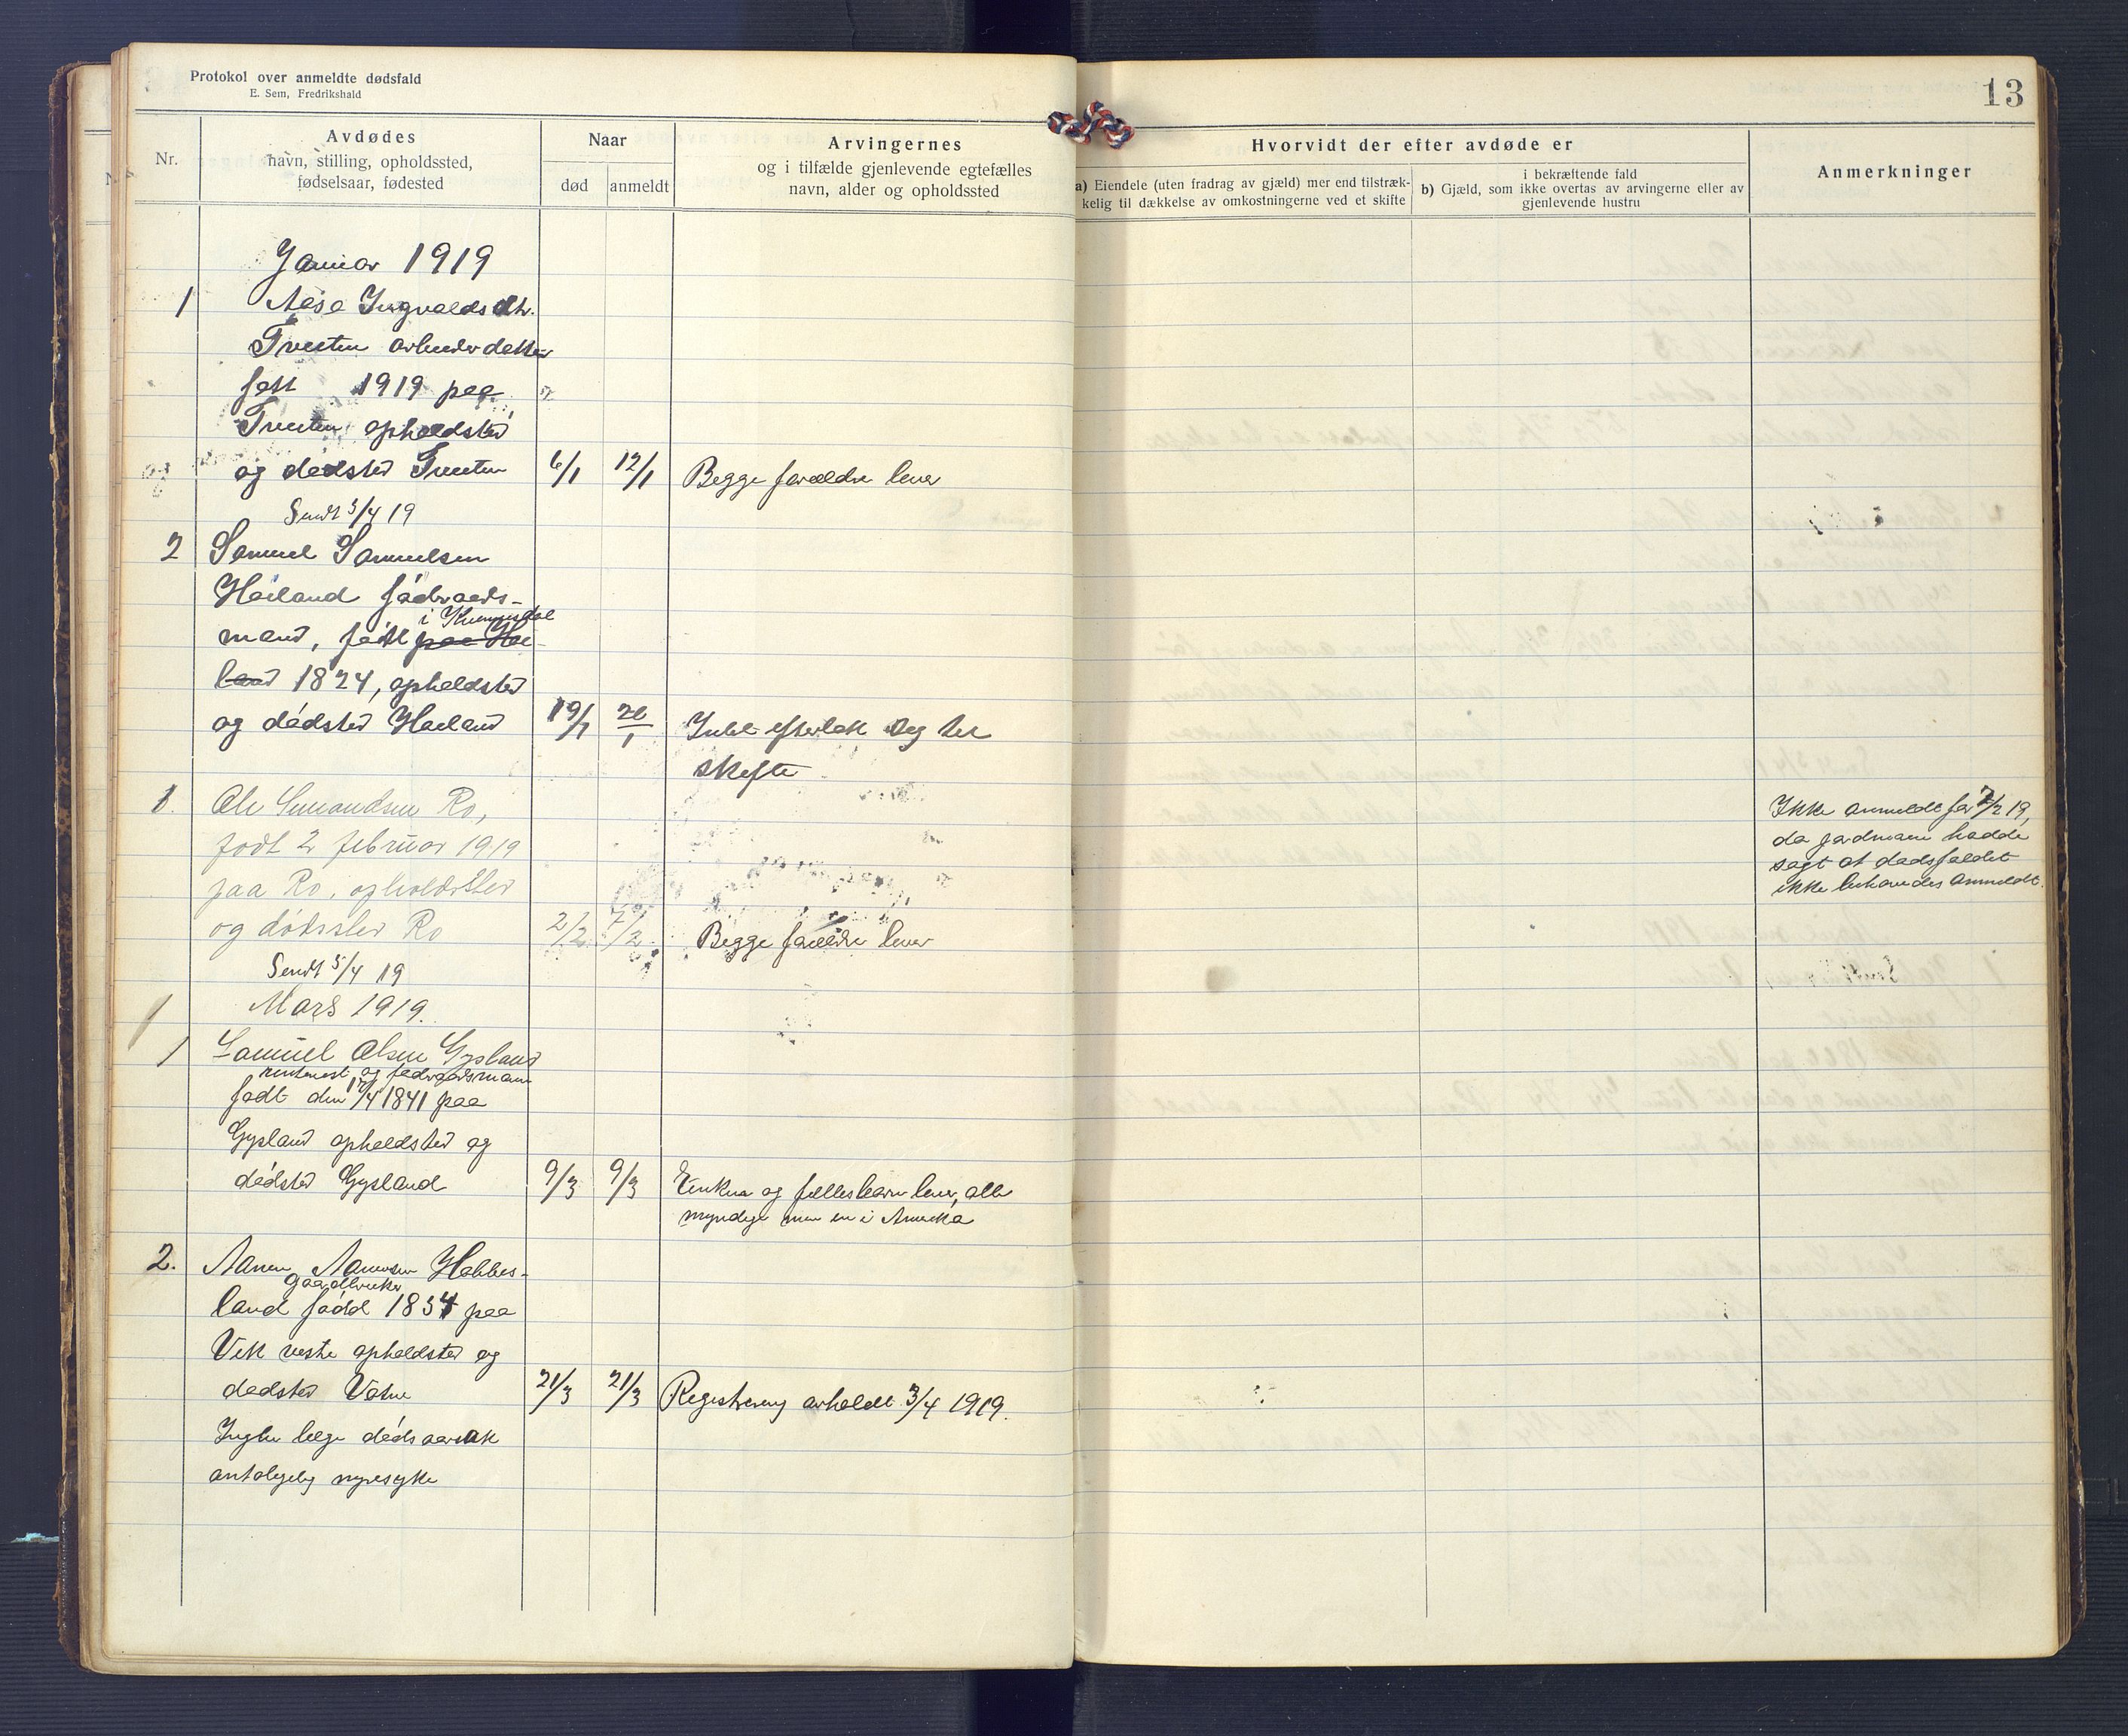 Protokol over anmeldte dødsfald
E. Sem, Fredrikshald
13
Nr.
Avdødes
navn, stilling, opholdssted,
fødselsaar, fødested
Naar
død
anmeldt
Arvingernes
og i tilfælde gjenlevende egtefælles
navn, alder og opholdssted
Hvorvidt der efter avdøde er
a) Eiendele (uten fradrag av gjæld) mer end tilstræk-
kelig til dækkelse av omkostningerne ved et skifte
i bekræftende fald
b) Gjæld, som ikke overtas av arvingerne eller av
gjenlevende hustru
Anmerkninger
Januar 1919
1 Aasa Ingvaldsdtr.
Tveiten
født 1919 paa
Tveiten opholdsted
og dødsted Tveiten 6/1 12/1 Begge forældre lever
Sendt 5/4 19
2 Samuel Samuelsen
Hailand fådraads-
mand, født i
paa Hai-
land 1824, opholdsted
og dødsted Hailand 19/1 20/1 Intet efterlatt seg til
skifte
1. Ole Simondsen Ro,
født 2 februar 1919
paa Ro, opholdssted
og dødssted Ro 2/2 7/2 Begge forældre lever
Ikke anmeldt før 7/2 19,
da jordmoren hadde
sagt at dødsfaldet
ikke behøvdes anmeldt.
Sendt 5/4 19
Mars 1919.
1 Samuel Olsen Gysland
og fødraadsmann
født den 17/4 1841 paa
Gysland opholdsted og
dødsted Gysland 9/3 9/3 Enken og fellesbarn lever, alle
myndige men en i Amerika
2. Aanen Aanensen Hobbes-
gaardbruker
land född 1834 paa
Vik vestre opholdsted og
dødsted Vatne 21/3 21/3 Registrering avholdt 3/4 1919.
Ingen læge dödsaarsak
antageligg nyresyke